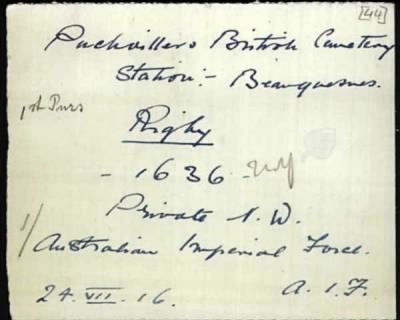 [44]
Puchvillers British Cemetery
Station:- Beauquesnes.
Rigby
- 1636 -
Private N. W.
1/
Australian Imperial Force.
24. VIII. 16. A. I. F.